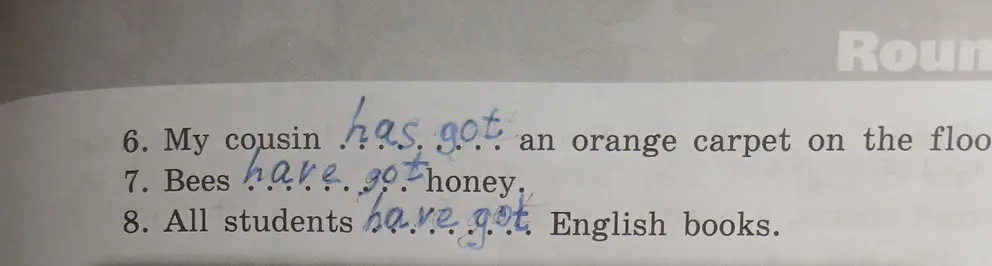 Roun
6. My cousin has got an orange carpet on the floo
7. Bees have got honey.
8. All students have got English books.